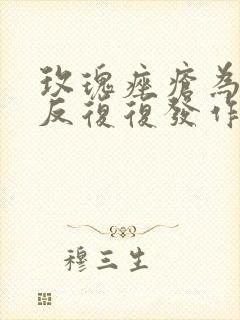 玫瑰痤瘡為
反復復發作
穆三生